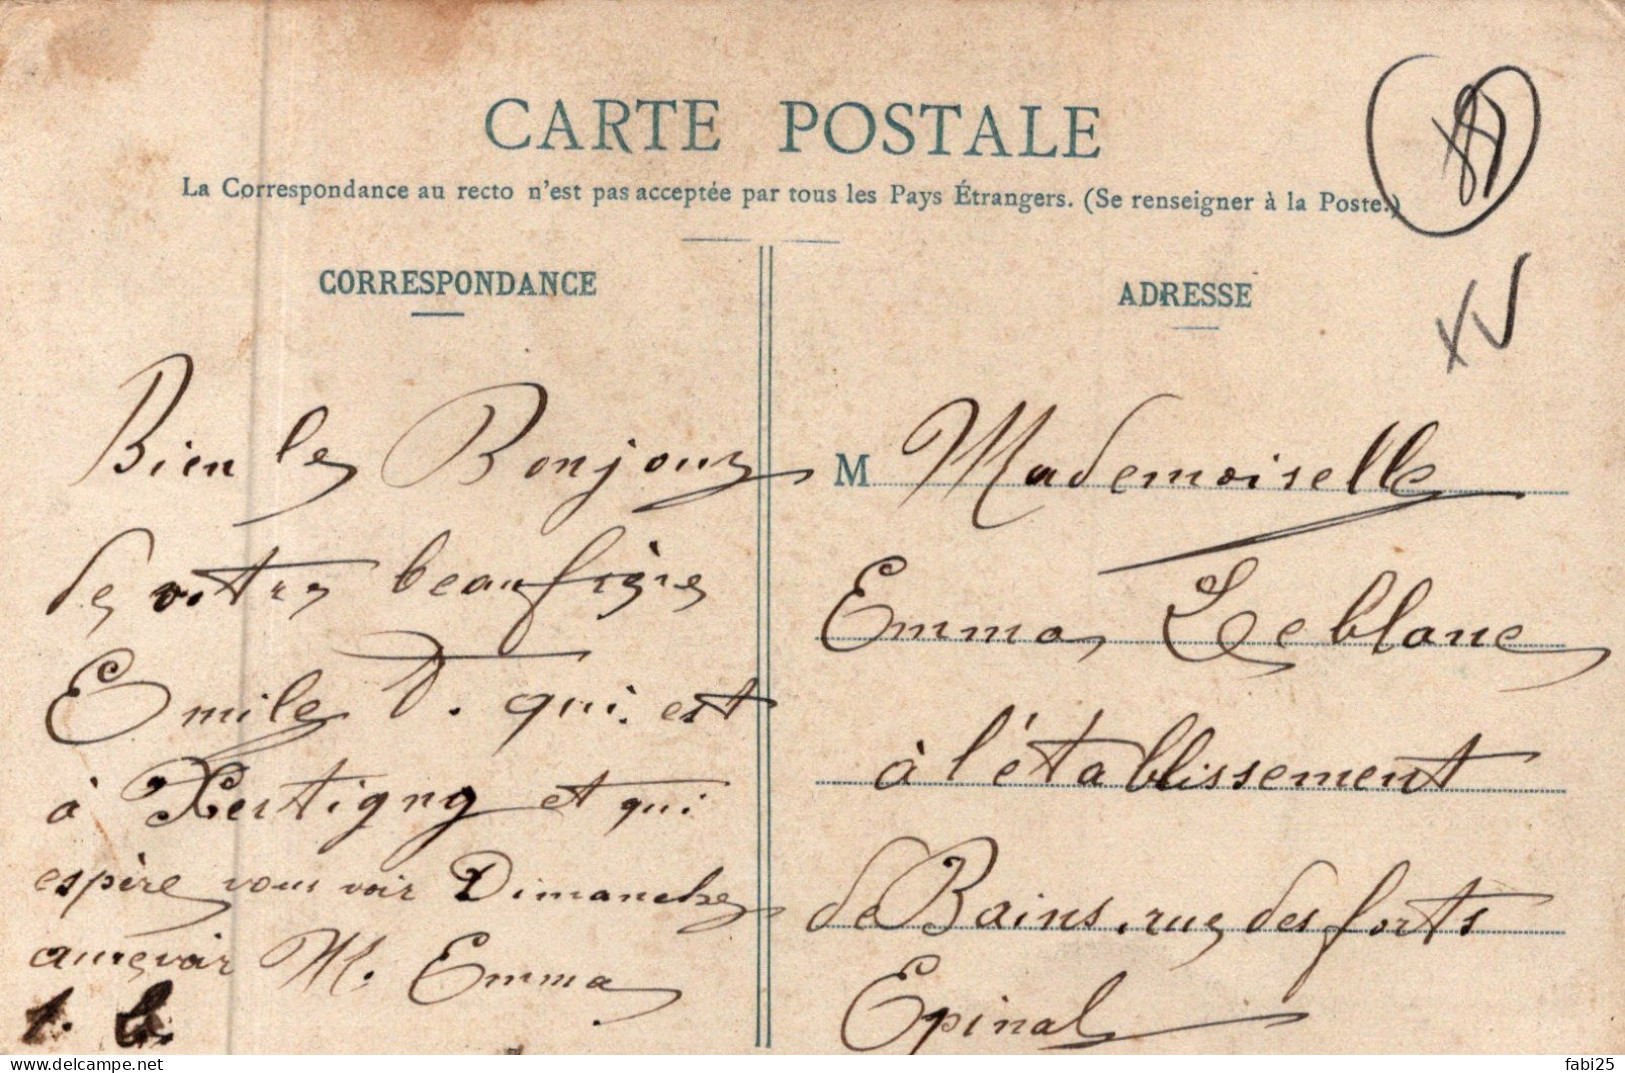 CARTE POSTALE
La Correspondance au recto n'est pas acceptée par tous les Pays Étrangers. (Se renseigner à la Poste.)
CORRESPONDANCE
Bien le Bonjour
de votre beaufrère
Emile D. qui est
à Xertigny et qui
espère vous voir Dimanche
aurevoir M. Emma
ADRESSE
M Mademoiselle
Emma Leblanc
à l'établissement
de Bains, rue des forts
Epinal
fabi25